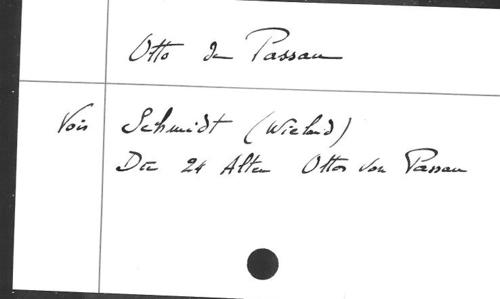 Otto de Passau
Voir Schmidt (Wieland)
Die 24 Alten Ottos von Passau